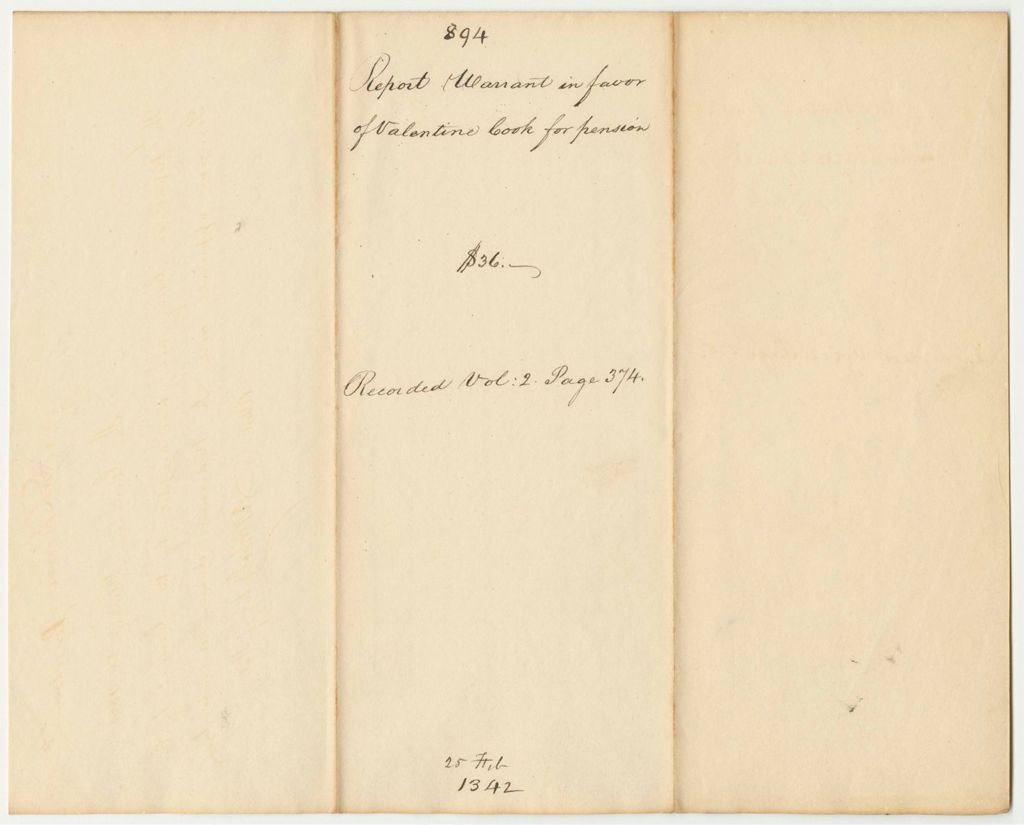 894
Report Warrant in favor
of Valentine Cook for pension
$36.—
Recorded Vol: 2. Page 374.
25 Feb
1342